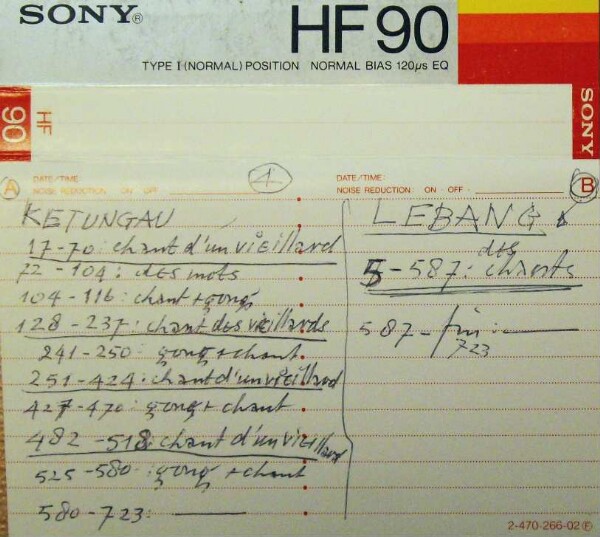 SONY®
HF 90
TYPE I (NORMAL) POSITION NORMAL BIAS 120µs EQ
90
HF
SONY
A
DATE/TIME:
NOISE REDUCTION ON OFF
4
KETUNGAU
17-70: chant d'un vieillard
72-104: des mots
104-116: chant + gong
128-237: chant des vieillards
241-250: gong + chant
251-424: chant d'un vieillard
427-470: gong + chant
482-518: chant d'un vieillard
525-580: gong + chant
580-723:
DATE/TIME:
NOISE REDUCTION ON OFF
B
LEBANG
5-587: des chants
587-fin:
723
2-470-266-02 F